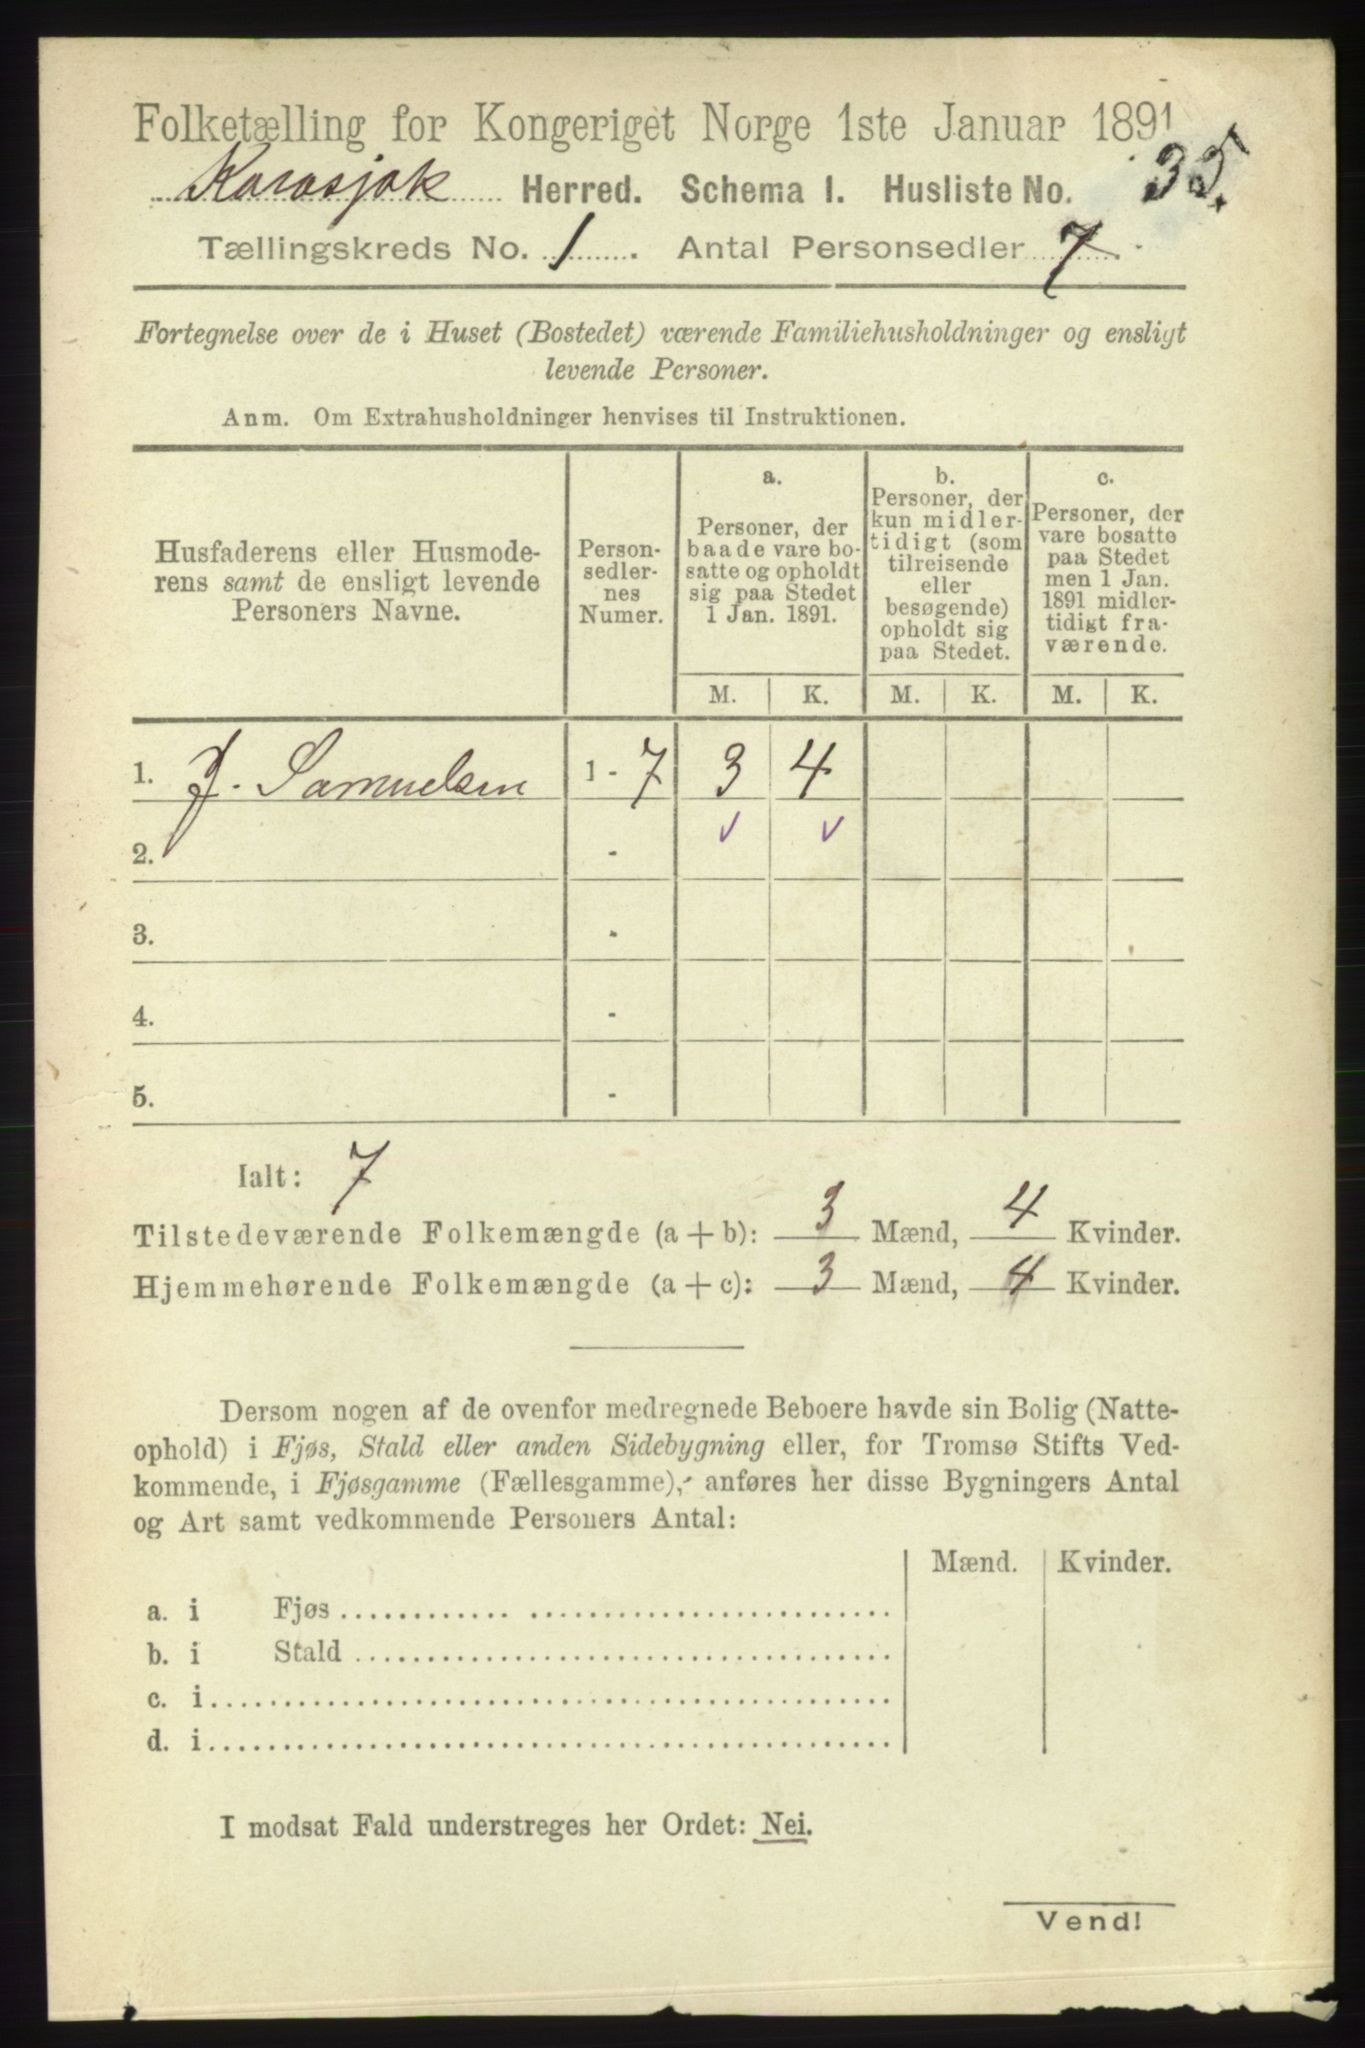 Folketælling for Kongeriget Norge 1ste Januar 1891
Karasjok Herred. Schema I. Husliste No. 35.
Tællingskreds No. 1. Antal Personsedler 7.
Fortegnelse over de i Huset (Bostedet) værende Familiehusholdninger og ensligt
levende Personer.
Anm. Om Extrahusholdninger henvises til Instruktionen.
Husfaderens eller Husmode-
rens samt de ensligt levende
Personers Navne.
Person-
sedler-
nes
Numer.
a.
Personer, der
baade vare bo-
satte og opholdt
sig paa Stedet
1 Jan. 1891.
b.
Personer, der
kun midler-
tidigt (som
tilreisende
eller
besøgende)
opholdt sig
paa Stedet.
c.
Personer, der
vare bosatte
paa Stedet
men 1 Jan.
1891 midler-
tidigt fra-
værende.
M. K. M. K. M. K.
1. J. Samuelsen 1 - 7 3 4
2. -
3. -
4. -
5. -
Ialt: 7
Tilstedeværende Folkemængde (a + b): 3 Mænd, 4 Kvinder.
Hjemmehørende Folkemængde (a + c): 3 Mænd, 4 Kvinder.
Dersom nogen af de ovenfor medregnede Beboere havde sin Bolig (Natte-
ophold) i Fjøs, Stald eller anden Sidebygning eller, for Tromsø Stifts Ved-
kommende, i Fjøsgamme (Fællesgamme), anføres her disse Bygningers Antal
og Art samt vedkommende Personers Antal:
Mænd. Kvinder.
a. i Fjøs
b. i Stald
c. i
d. i
I modsat Fald understreges her Ordet: Nei.
Vend!